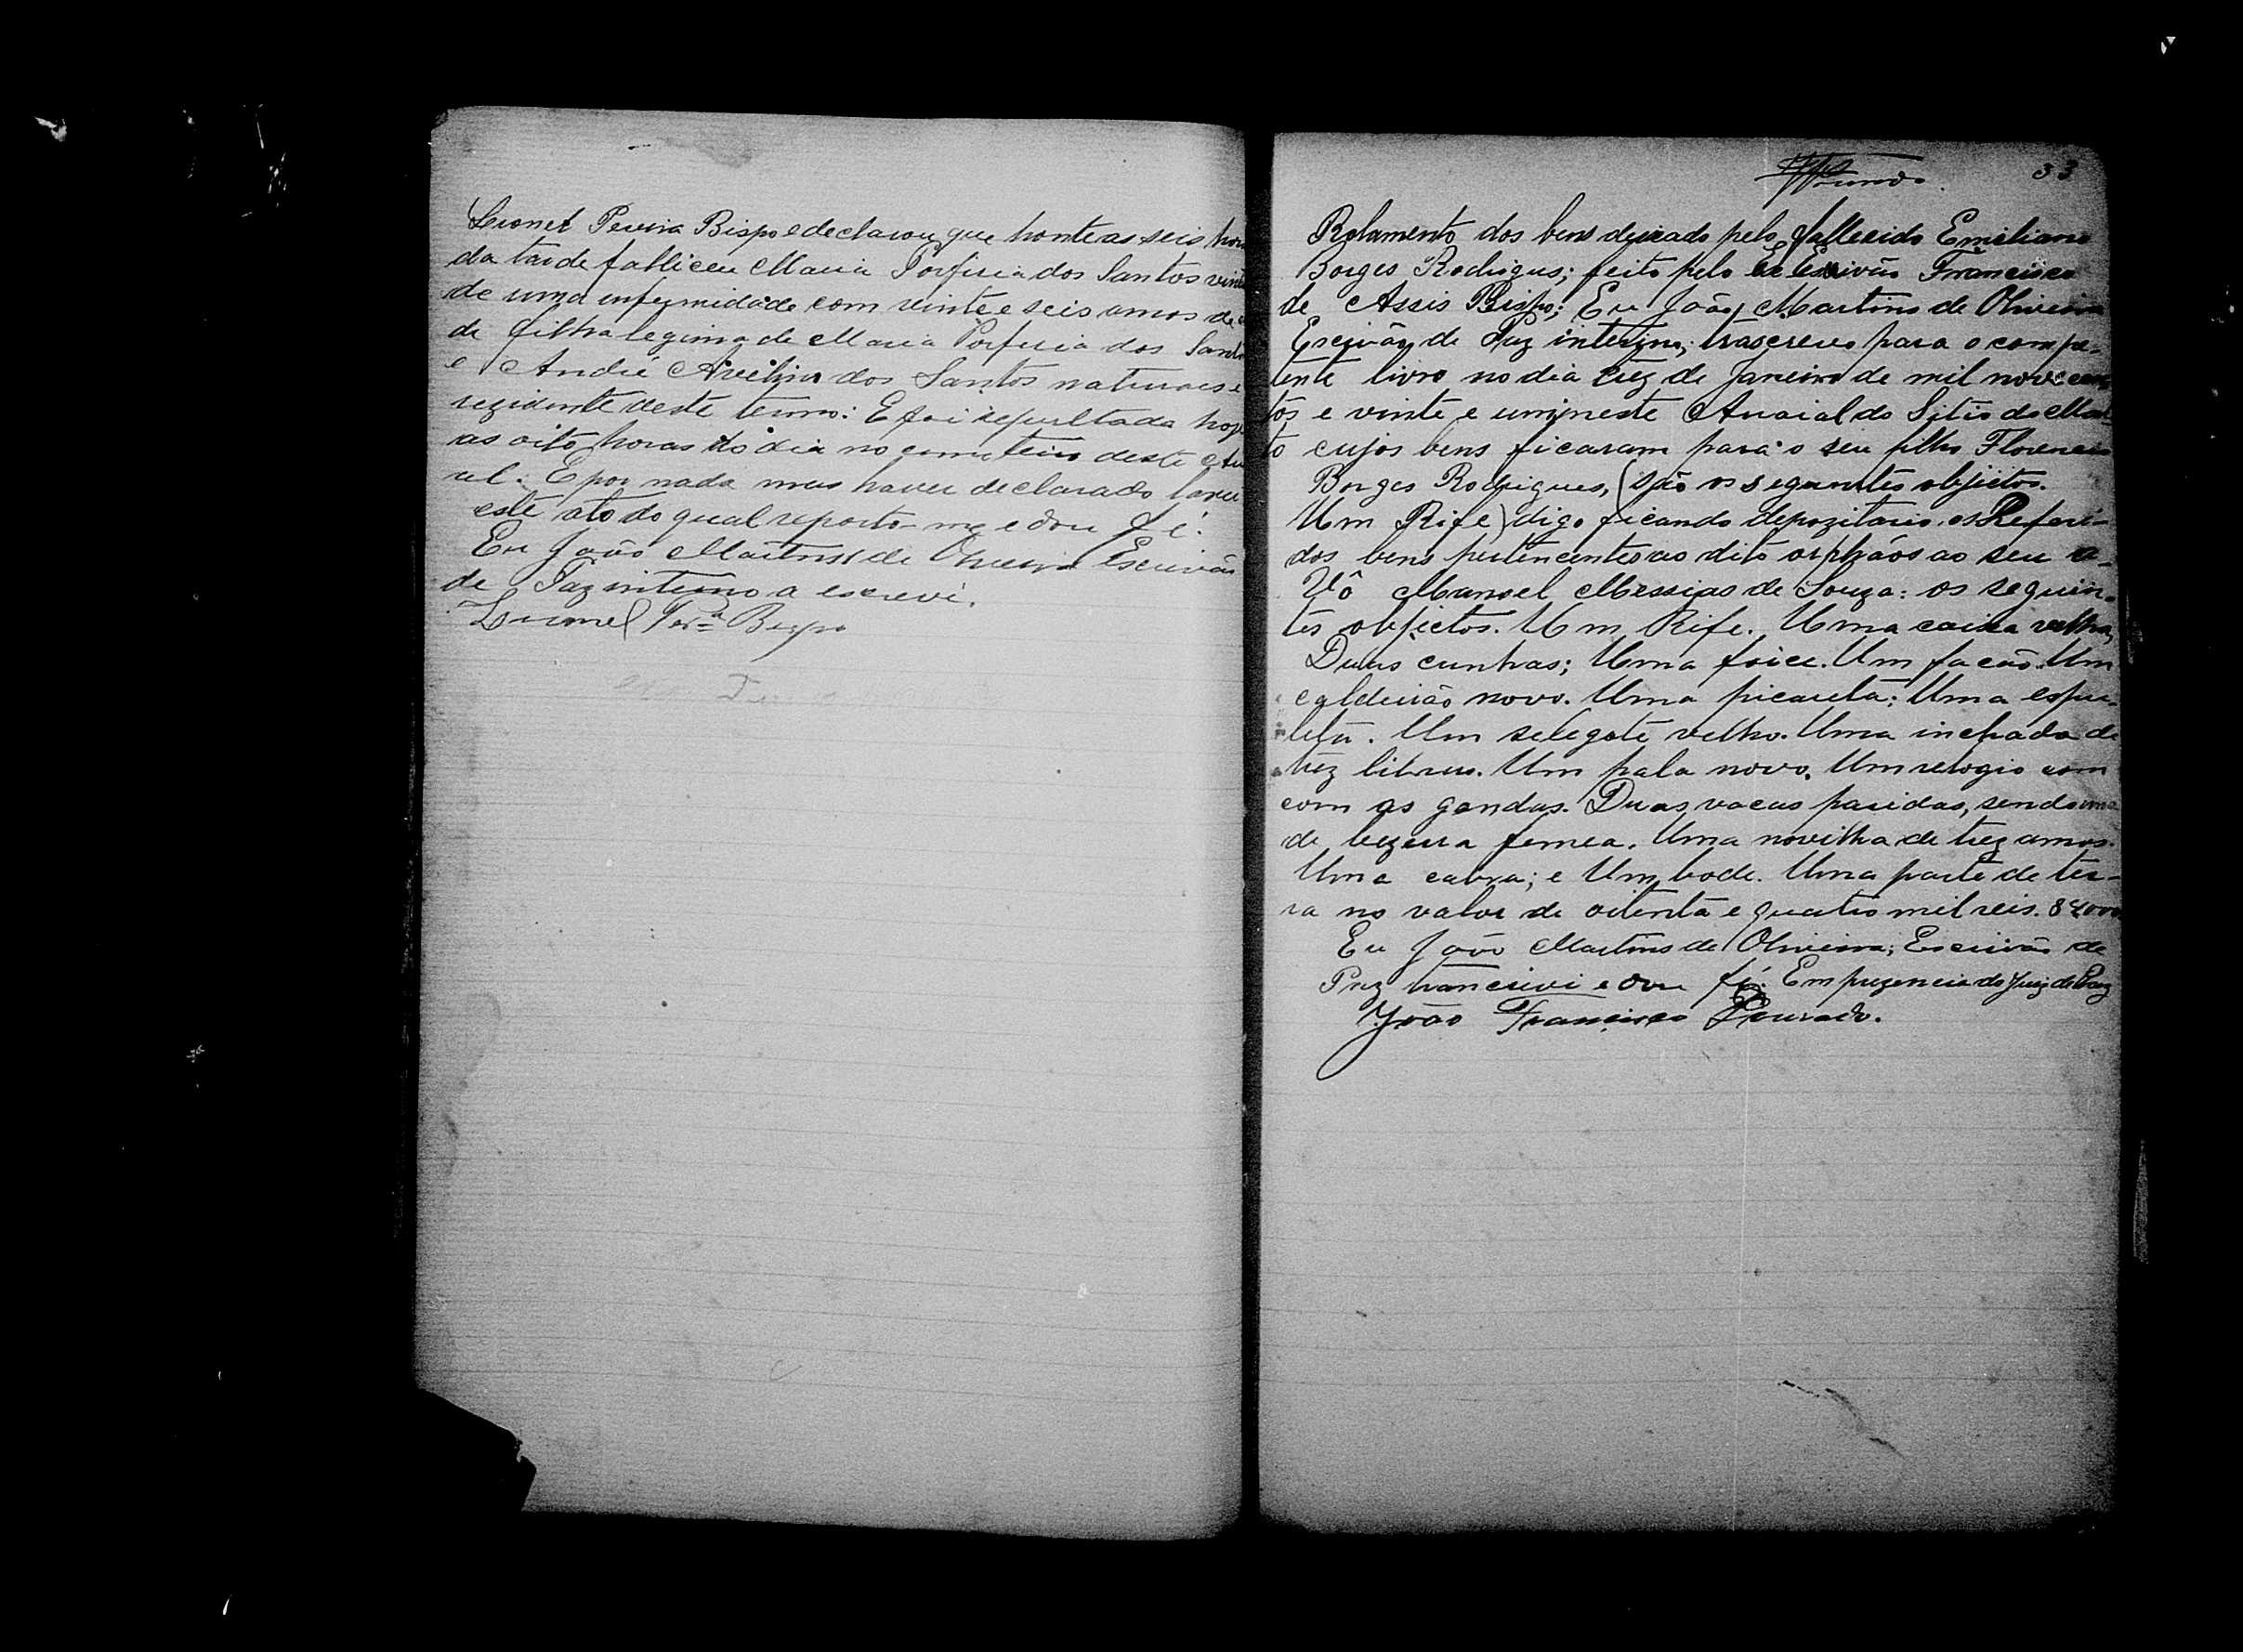 Leonel Pereira Bispo e declarou que honte as seis hora
da tarde falliceu Maria Porfiria dos Santos
de uma infermidade com vinte e seis annos de
de filha legima de Maria Porfiria dos Sant
e André Avelino dos Santos naturaes e
rezidente deste termo: E foi sepultada hoje
as oito horas do dia no cemiterio deste
al. E por nada mas haver declarado lavrei
este ato do qual reporto-me e dou fé.
Eu João Martins de Oliveira Escrivão
de Paz interino a escrevi.
Leonel Per.ª Bispo
33
Rolamento dos bens deixado pelo fallecido Emiliano
Borges Rodrigus; feito pelo Ex Escrivão Francisco
de Assis Bispo; Eu João Martins de Oliveira
Escrivão de Paz interino; trascrevo para o compe-
tente livro no dia trez de Janeiro de mil novecen
tos e vinte e um; neste Arraial do Sitio do Mat-
to cujos bens ficaram para o seu filho Florencio
Borges Rodrigues, (são os seguintes objétos.
Um Rife) digo ficando depozitario os Referi-
dos bens pertencentes ao dito orphãos ao seu a-
Vô Manoel Messias de Souza: os seguin-
tes objectos. Um Rife. Uma caixa velha,
Duas cunhas; Uma foice. Um facão. Um
caldeirão novo. Uma picareta; Uma espu-
leta. Um selegote velho. Uma inchada de
trez libras. Um pala novo. Um relogio com
com as gondas. Duas vacas paridas, sendo uma
de bezerra femea. Uma novilha de trez annos.
Uma cabra; e Um bode. Uma parte de ter-
ra no valor de oitenta e quatro mil reis. 84000
Eu João Martins de Oliveira; Escrivão de
Paz trancrevi e dou fé. Em prezencia do Juiz de Paz
João Francisco Dourado.